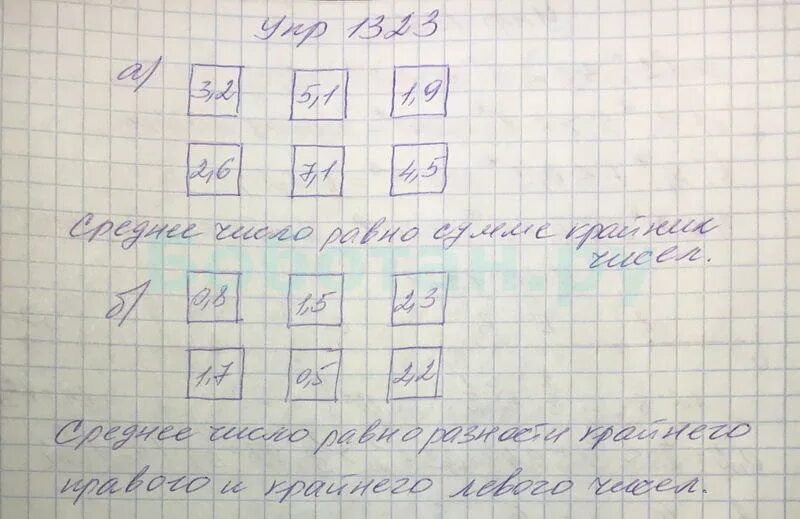 Упр 1323
а) 3,2 5,1 1,9
2,6 7,1 4,5
Среднее число равно сумме крайних
чисел.
ботан.ру
б) 0,8 1,5 2,3
1,7 0,5 2,2
Среднее число равно разности крайнего
правого и крайнего левого чисел.